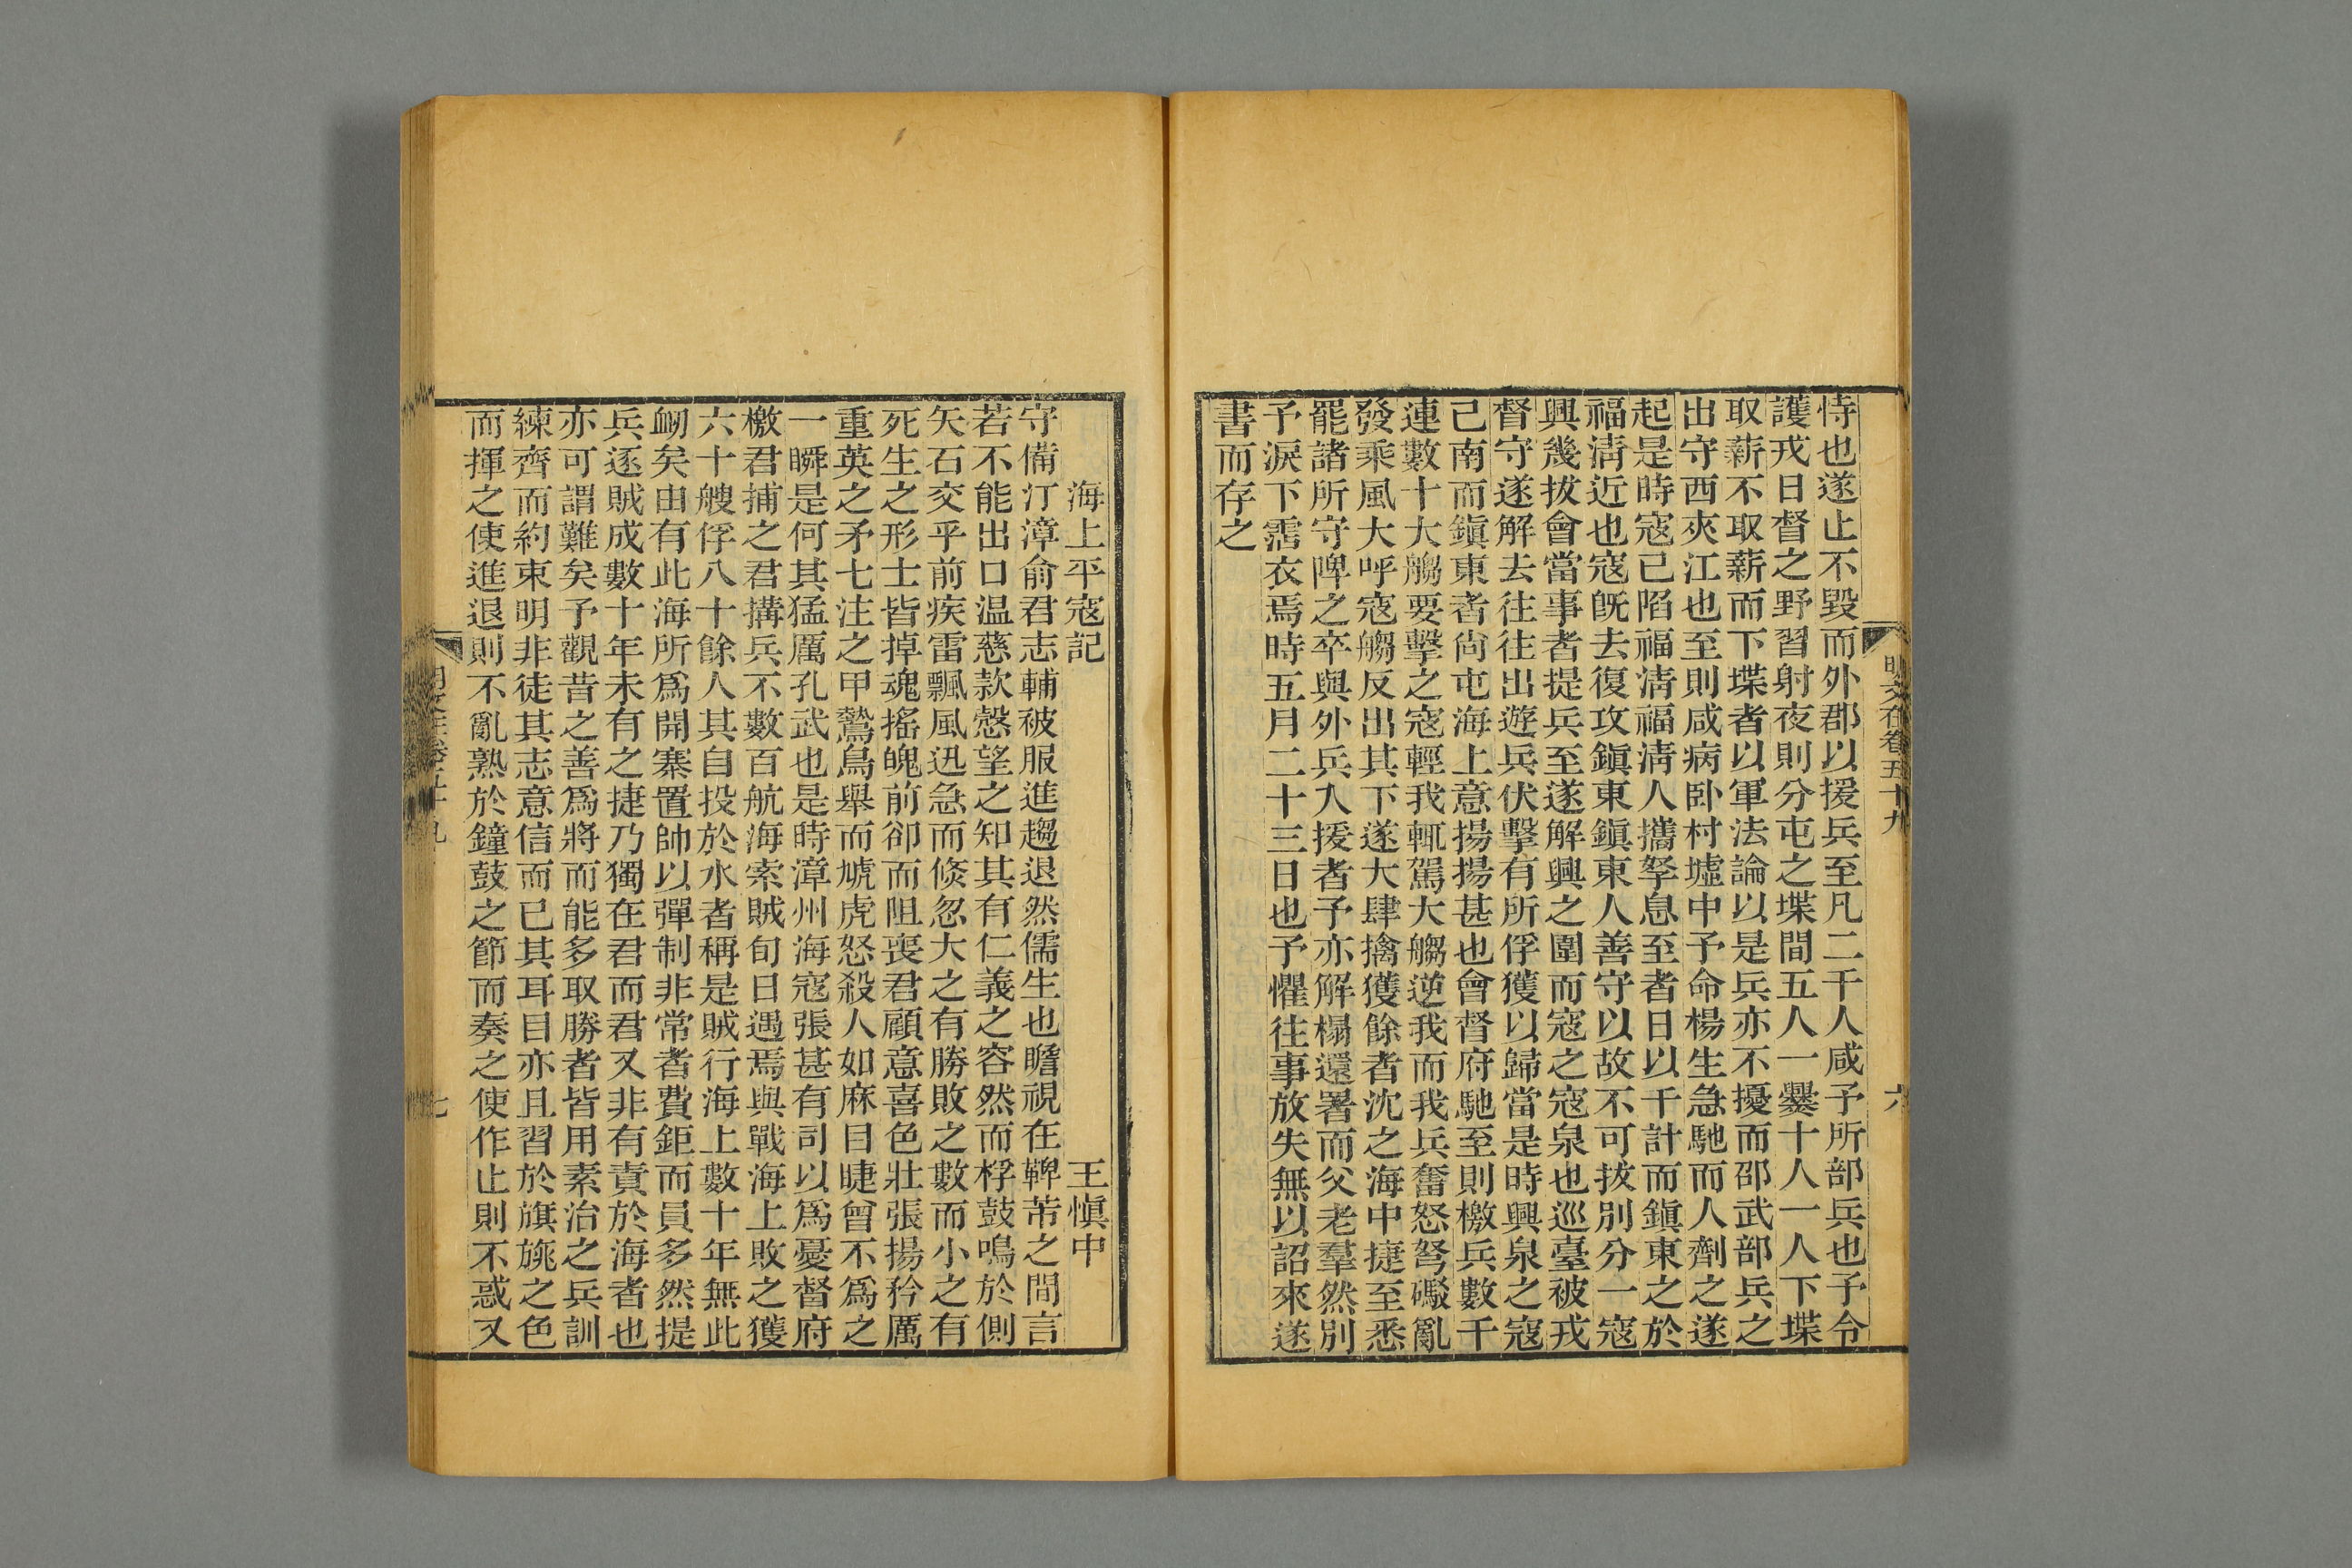 恃也遂止不毀而外郡以援兵至凡二千人咸予所部兵也予令
護戎日督之野習射夜則分屯之堞間五人一爨十人一人下堞
取薪不取薪而下堞者以軍法論以是兵亦不擾而邵武部兵之
出守西夾江也至則咸病卧村墟中予命楊生急馳而人劑之遂
起是時寇已陷福清福清人攜孥息至者日以千計而鎭東之於
福清近也寇既去復攻鎭東鎭東人善守以故不可拔別分一寇
興幾拔會當事者提兵至遂解興之圍而寇之寇泉也巡臺被戎
督守遂解去往往出遊兵伏擊有所俘獲以歸當是時興泉之寇
己南而鎭東者尙屯海上意揚揚甚也會督府馳至則檄兵數千
連數十大艑要擊之寇輕我輒駕大艑逆我而我兵奮怒弩礮亂
發乘風大呼寇艑反出其下遂大肆擒獲餘者沈之海中捷至悉
罷諸所守陴之卒與外兵入援者予亦解榻還署而父老羣然別
予淚下霑衣焉時五月二十三日也予懼往事放失無以詔來遂
書而存之
明文在卷五十九
六
海上平寇記
王愼中
守備汀漳俞君志輔被服進趨退然儒生也瞻視在鞞芾之間言
若不能出口温慈款愨望之知其有仁義之容然而桴鼓鳴於側
矢石交乎前疾雷飄風迅急而倏忽大之有勝敗之數而小之有
死生之形士皆掉魂搖魄前卻而阻喪君顧意喜色壯張揚矜厲
重英之矛七注之甲鷙鳥舉而虓虎怒殺人如麻目睫曾不爲之
一瞬是何其猛厲孔武也是時漳州海寇張甚有司以爲憂督府
檄君捕之君搆兵不數百航海索賊旬日遇焉與戰海上敗之獲
六十艘俘八十餘人其自投於水者稱是賊行海上數十年無此
衂矣由有此海所爲開寨置帥以彈制非常者費鉅而員多然提
兵逐賊成數十年未有之捷乃獨在君而君又非有責於海者也
亦可謂難矣予觀昔之善爲將而能多取勝者皆用素治之兵訓
練齊而約束明非徒其志意信而已其耳目亦且習於旗旐之色
而揮之使進退則不亂熟於鐘鼓之節而奏之使作止則不惑又
七